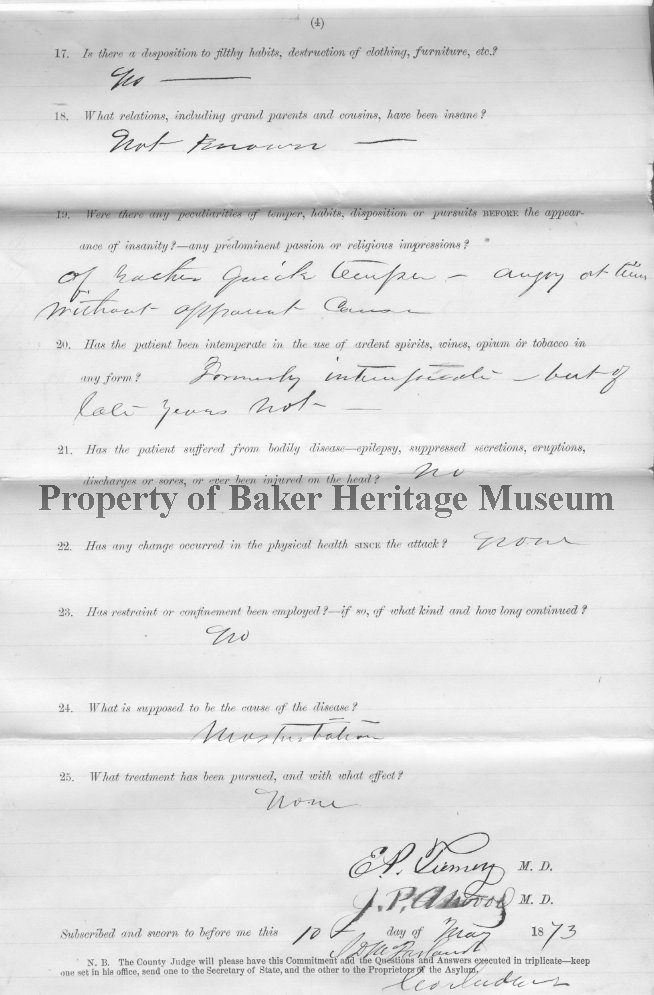 (4)
17. Is there a disposition to filthy habits, destruction of clothing, furniture, etc.?
No —
18. What relations, including grand parents and cousins, have been insane?
Not Known —
19. Were there any peculiarities of temper, habits, disposition or pursuits BEFORE the appear-
ance of insanity?—any predominent passion or religious impressions?
of Rather quick temper – angry at times
without apparent Cause
20. Has the patient been intemperate in the use of ardent spirits, wines, opium or tobacco in
any form? Formerly intemperate – but of
late years Not —
21. Has the patient suffered from bodily disease—epilepsy, suppressed secretions, eruptions,
discharges or sores, or ever been injured on the head? No
Property of Baker Heritage Museum
22. Has any change occurred in the physical health SINCE the attack? None
23. Has restraint or confinement been employed?—if so, of what kind and how long continued?
No
24. What is supposed to be the cause of the disease?
Masturbation
25. What treatment has been pursued, and with what effect?
None
E.P. M. D.
J.P. Atwood M. D.
Subscribed and sworn to before me this 10 day of May 1873
N. B. The County Judge will please have this Commitment and the Questions and Answers executed in triplicate—keep
one set in his office, send one to the Secretary of State, and the other to the Proprietors of the Asylum.
Co Judge